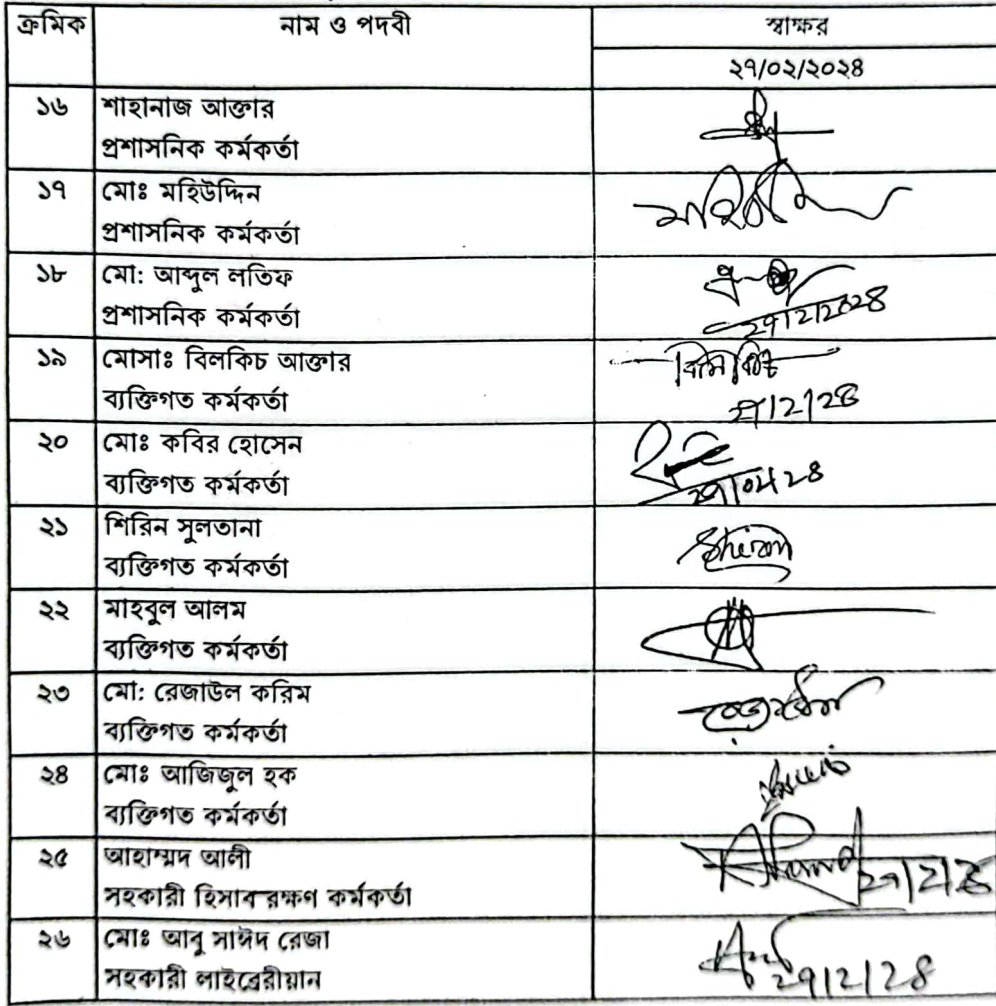 ক্রমিক নাম ও পদবী স্বাক্ষর
২৭/০২/২০২৪
১৬ শাহানাজ আক্তার
প্রশাসনিক কর্মকর্তা
১৭ মোঃ মহিউদ্দিন
প্রশাসনিক কর্মকর্তা
১৮ মো: আব্দুল লতিফ
প্রশাসনিক কর্মকর্তা ২৭/২/২০২৪
১৯ মোসাঃ বিলকিচ আক্তার
ব্যক্তিগত কর্মকর্তা ২৭/২/২৪
২০ মোঃ কবির হোসেন
ব্যক্তিগত কর্মকর্তা ২৭/০২/২৪
২১ শিরিন সুলতানা Shirin
ব্যক্তিগত কর্মকর্তা
২২ মাহবুল আলম
ব্যক্তিগত কর্মকর্তা
২৩ মো: রেজাউল করিম
ব্যক্তিগত কর্মকর্তা
২৪ মোঃ আজিজুল হক
ব্যক্তিগত কর্মকর্তা
২৫ আহাম্মদ আলী
সহকারী হিসাব রক্ষণ কর্মকর্তা ২৭/২/২৪
২৬ মোঃ আবু সাঈদ রেজা
সহকারী লাইব্রেরীয়ান ২৭/২/২৪